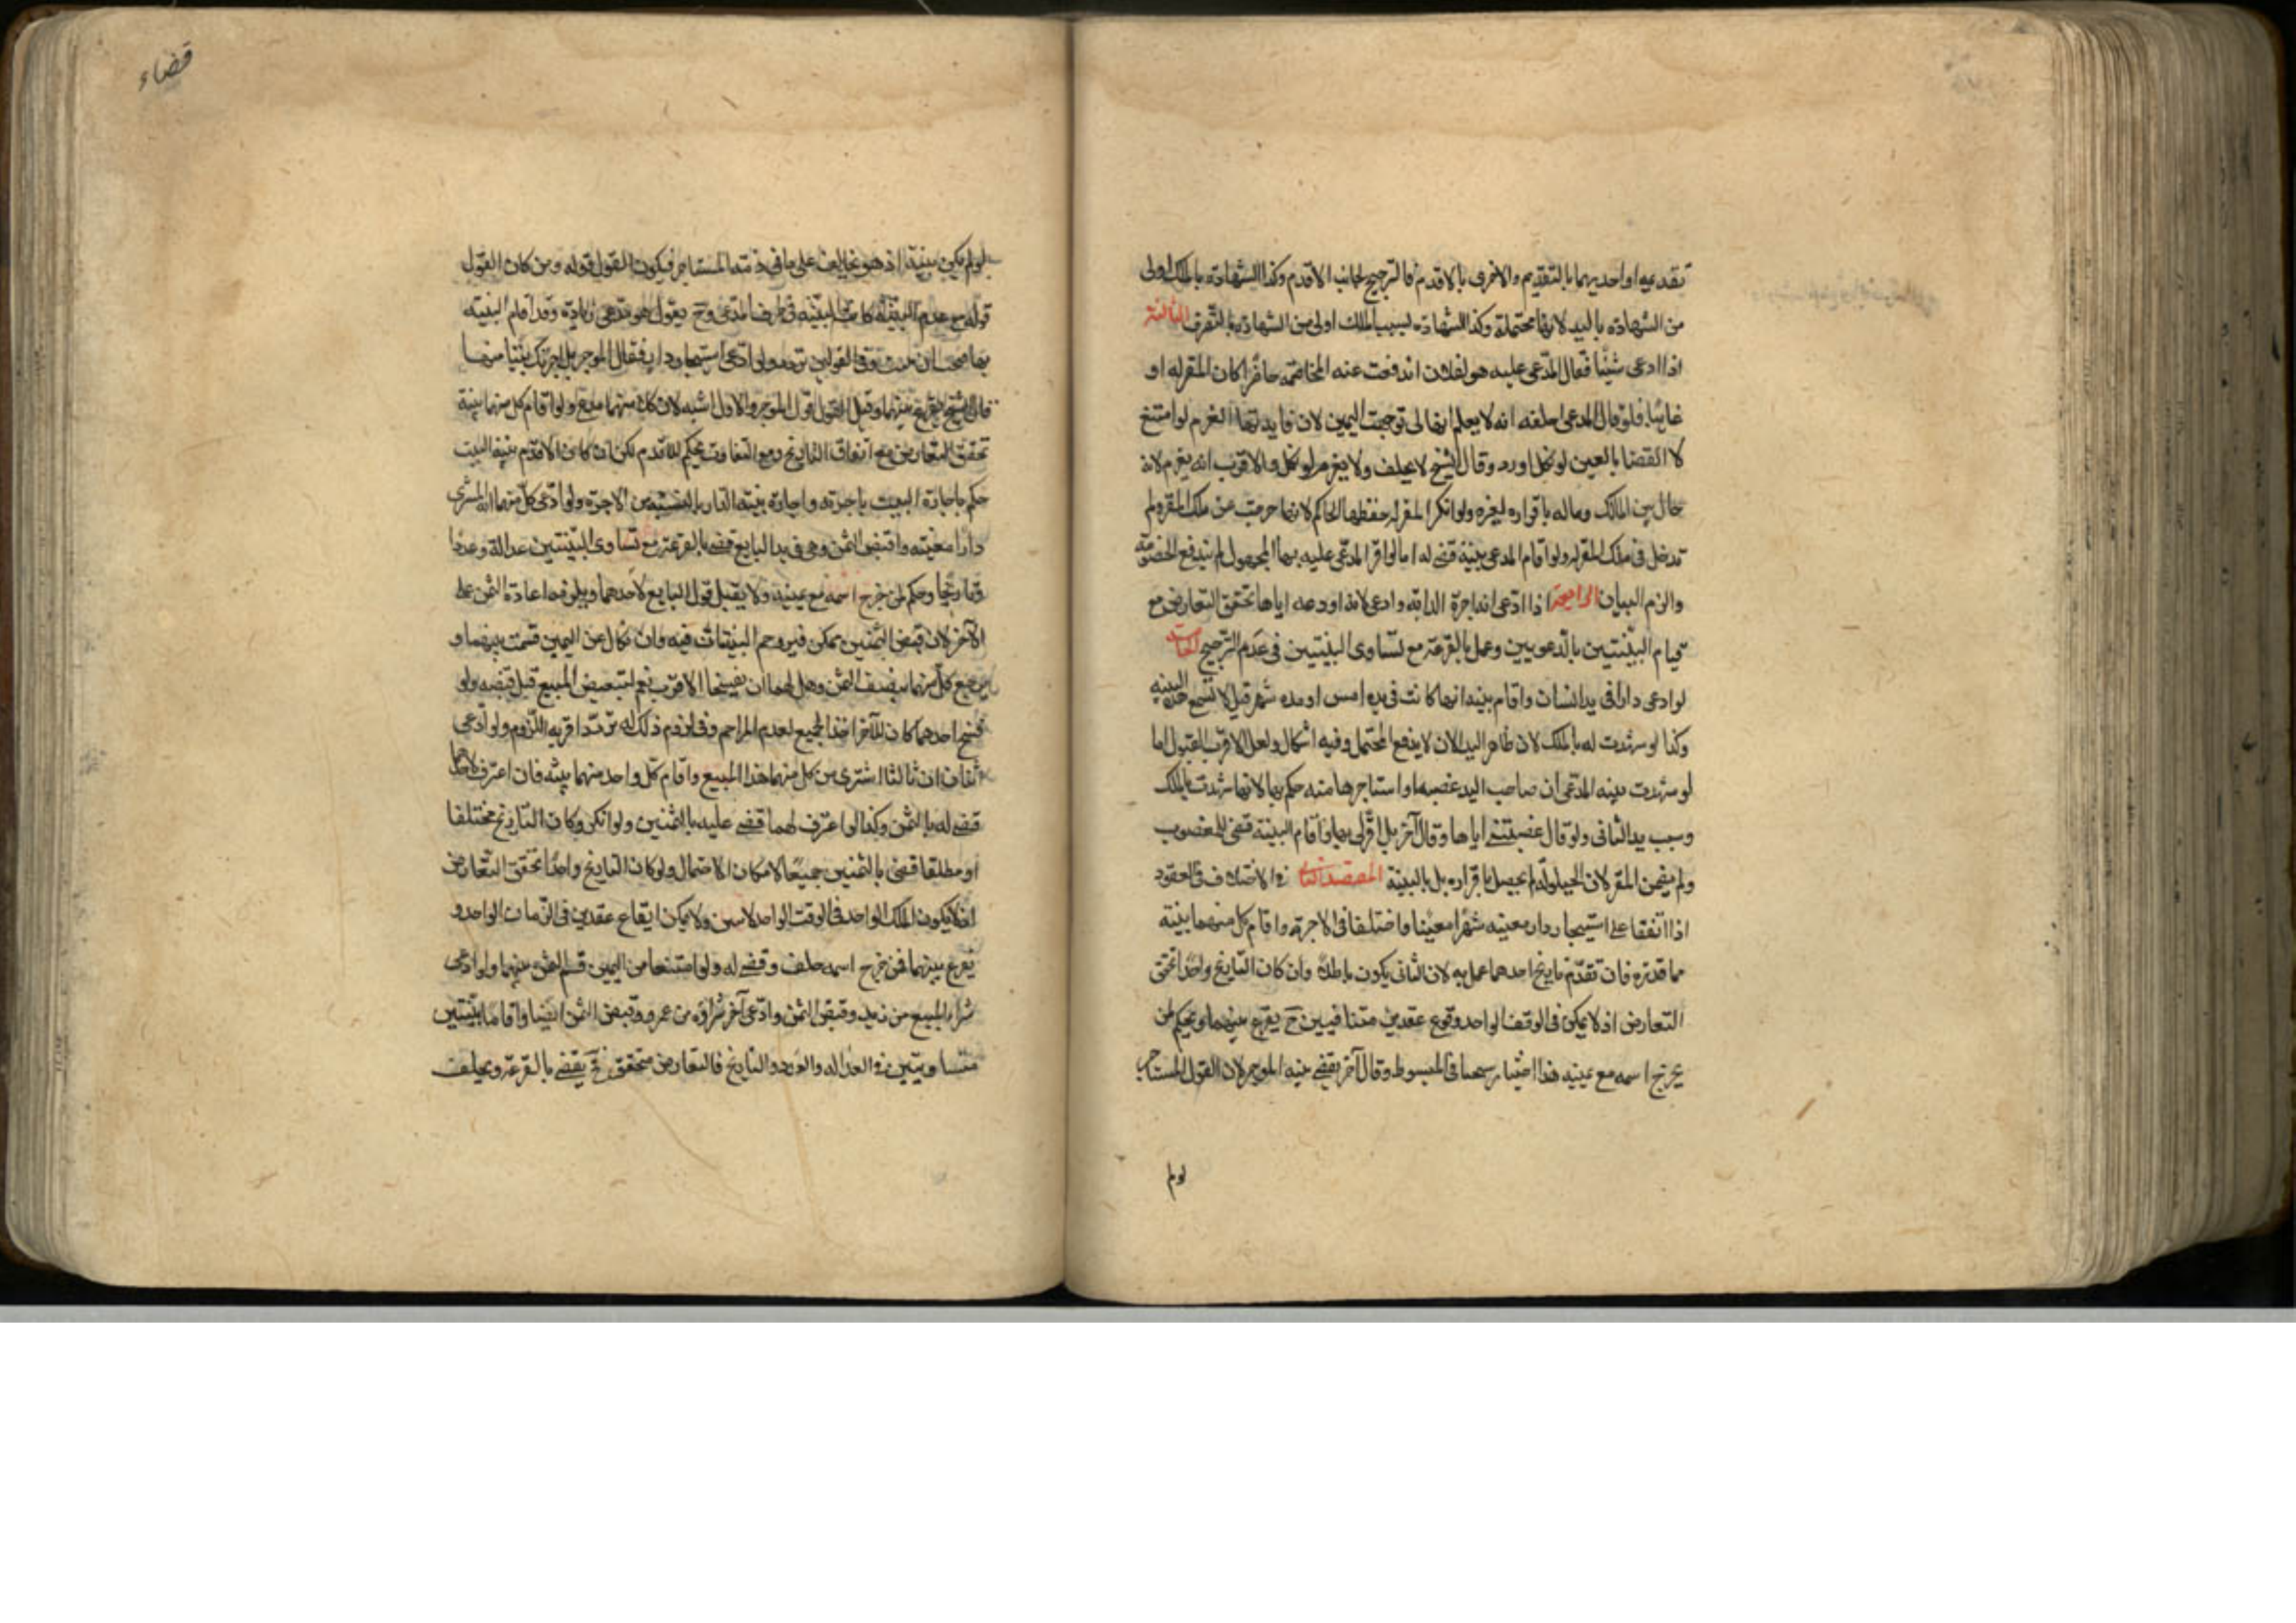 بقديم او احديهما بالتقديم والاخرى بالاقدم فالترجيح لجانب الاقدم وكذا الشهادة بالملك اولى
من الشهادة باليد لانها محتملة وكذا الشهادة بسبب الملك اولى من الشهادة بالتصرف الثالثة
اذا ادعى شيئا فقال المدعى عليه هو لفلان اندفعت عنه المخاصمة حاضرا كان المقر له او
غائبا فلو قال المدعى احلفه انه لا يعلم انها لى توجهت اليمين لان فايدتها الغرم لو امتنع
لا القضا بالعين لو نكل اورد وقال الشيخ لا يحلف ولا يغرم لو نكل والاقرب انه يغرم لانه
حال بين المالك وماله باقراره لغيره ولو انكر المقر له حفظها الحاكم لانها خرجت عن ملك المقر ولم
تدخل فى ملك المقر له ولو اقام المدعى بينة قضى له اما لو اقر المدعى عليه بها لمجهول لم تندفع الخصومة
والزم البيان الرابعة اذا ادعى انه اجره الدابة وادعى اخر انه اودعه اياها تحقق التعارض مع
قيام البينتين بالدعويين وعمل بالقرعة مع تساوى البينتين فى عدم الترجيح الخامسة
لو ادعى دارا فى يد انسان واقام بينة انها كانت فى يده امس او منذ شهر قيل لا تسمع هذه البينة
وكذا لو شهدت له بالملك لان ظاهر اليد الان لا يدفع المحتمل وفيه اشكال ولعل الاقرب القبول اما
لو شهدت بينة المدعى ان صاحب اليد غصبها او استاجرها منه حكم بها لانها شهدت بالملك
وسبب يد الثانى ولو قال غصبتنى اياها وقال آخر بل اقر لى بها واقام البينة قضى للمغصوب
ولم يضمن المقر لان الحيلولة لم يحصل باقراره بل بالبينة المقصد الثانى فى الاختلاف فى العقود
اذا اتفقا على استيجار دار معينة شهرا معينا واختلفا فى الاجرة واقام كل منهما بينة
بما قدره فان تقدم تاريخ احدهما عمل به لان الثانى يكون باطلا وان كان التاريخ واحدا تحقق
التعارض اذ لا يمكن فى الوقت الواحد وقوع عقدين متنافيين وح يقرع بينهما ويحكم لمن
يخرج اسمه مع يمينه هذا اختيار شيخنا فى المبسوط وقال آخر يقضى ببينة الموجر لان القول للمستاجر
لو لم
قضاء
لو لم يكن بينة اذ هو يخالف على ما فى ذمة المستاجر فيكون القول قوله ومن كان القول
قوله مع عدم البينة كانت البينة فى طرف المدعى وح نقول هو مدعى زيادة وقد اقام البينة
بها فيجب ان تثبت وفى القولين تردد ولو ادعى استيجار دار فقال الموجر بل اجرتك بيتا منها
قال الشيخ يقرع بينهما وقيل القول قول الموجر والاول اشبه لان كلا منهما مدع ولو اقام كل منهما بينة
تحقق التعارض مع اتفاق التاريخ ومع التفاوت يحكم للاقدم لكن ان كان الاقدم بينة البيت
حكم باجارة البيت باجرته واجارة بقية الدار بالنسبة من الاجرة ولو ادعى كل منهما انه اشترى
دارا معينة واقبض الثمن وهى فى يد البايع قضى بالقرعة مع تساوى البينتين عدالة وعددا
وتاريخا وحكم لمن خرج اسمه مع يمينه ولا يقبل قول البايع لاحدهما ويلزمه اعادة الثمن على
الآخر لان قبض الثمنين ممكن فيزدحم البينتان فيه وان نكلا عن اليمين قسمت بينهما و
يرجع كل منهما بنصف الثمن وهل لهما ان يفسخا الاقرب نعم لتبعيض المبيع قبل قبضه ولو
فسخ احدهما كان للآخر اخذ الجميع لعدم المزاحم وفى لزوم ذلك له تردد اقربه اللزوم ولو ادعى
اثنان ان ثالثا اشترى من كل منهما هذا المبيع واقام كل واحد منهما بينة فان اعترف لاحدهما
قضى له بالثمن وكذا لو اعترف لهما قضى عليه بالثمنين ولو انكر وكان التاريخ مختلفا
او مطلقا قضى بالثمنين جميعا لامكان الاحتمال ولو كان التاريخ واحدا تحقق التعارض
اذ لا يكون الملك الواحد فى الوقت الواحد لاثنين ولا يمكن ايقاع عقدين فى الزمان الواحد و
يقرع بينهما فمن خرج اسمه حلف وقضى له ولو امتنعا من اليمين قسم الثمن بينهما ولو ادعى
شراء المبيع من زيد وقبض الثمن وادعى آخر شراؤه من عمرو وقبض الثمن ايضا واقاما بينتين
متساويتين فى العدالة والعدد والتاريخ فالتعارض متحقق فح يقضى بالقرعة ويحلف